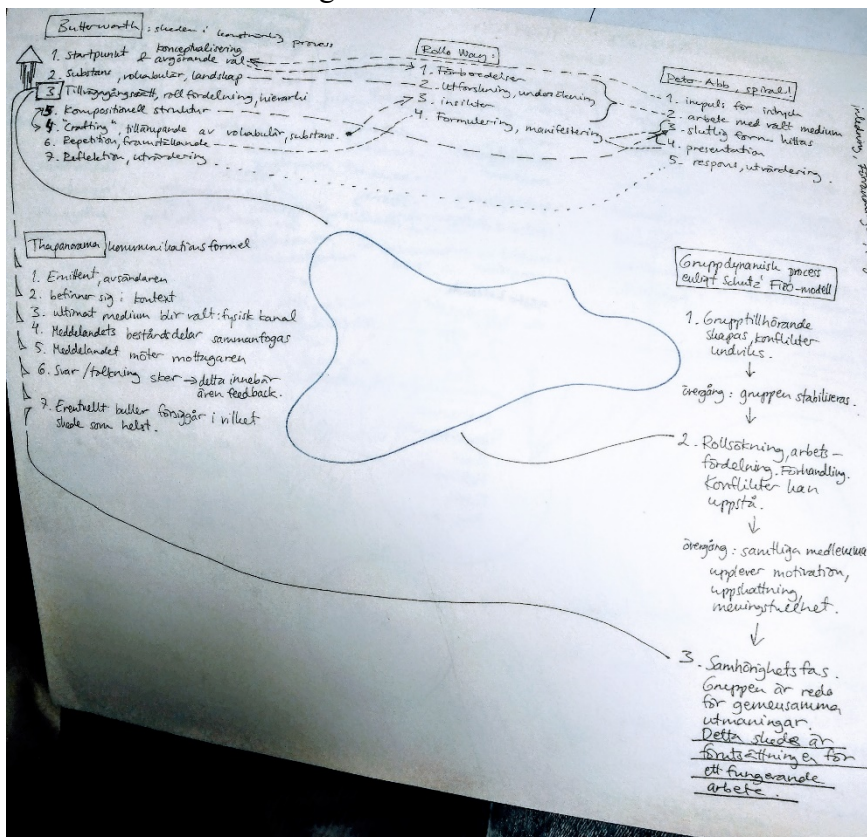 Butterworth: skeden i konstnärlig process
1. startpunkt & konceptualisering
avgörande val
2. substans, vokabulär, landskap
3. Tillvägagångssätt, rollfördelning, hierarki
5. Kompositionell struktur
4. "Crafting", tillämpande av vokabulär, substans.
6. Repetition, framställande
7. Reflektion, utvärdering
Rollo May:
1. Förberedelser
2. Utforskning, undersökning
3. insikter
4. Formulering, manifestering
Dator Abb, spiral!
1. impuls för
2. arbete med valt medium
3. slutlig form hittas
4. presentation
5. respons, utvärdering.
kommunikationsformel
1. Emittent, avsändaren
2. befinner sig i kontext
3. ultimat medium blir valt: fysisk kanal
4. Meddelandets beståndsdelar sammanfogas
5. Meddelandet möter mottagaren
6. Svar/tolkning sker → detta innebär
även feedback.
7. Eventuellt buller försiggår i vilket
skede som helst.
Gruppdynamisk process
enligt Schutz' FIRO-modell
1. Grupptillhörande
skapas, konflikter
undviks.
övergång: gruppen stabiliseras.
2. Rollsökning, arbets-
fördelning. Förhandling.
Konflikter kan
uppstå.
övergång: samtliga medlemmar
upplever motivation,
uppskattning,
meningsfullhet.
3. Samhörighetsfas.
Gruppen är redo
för gemensamma
utmaningar.
Detta skede är
förutsättningen för
ett fungerande
arbete.